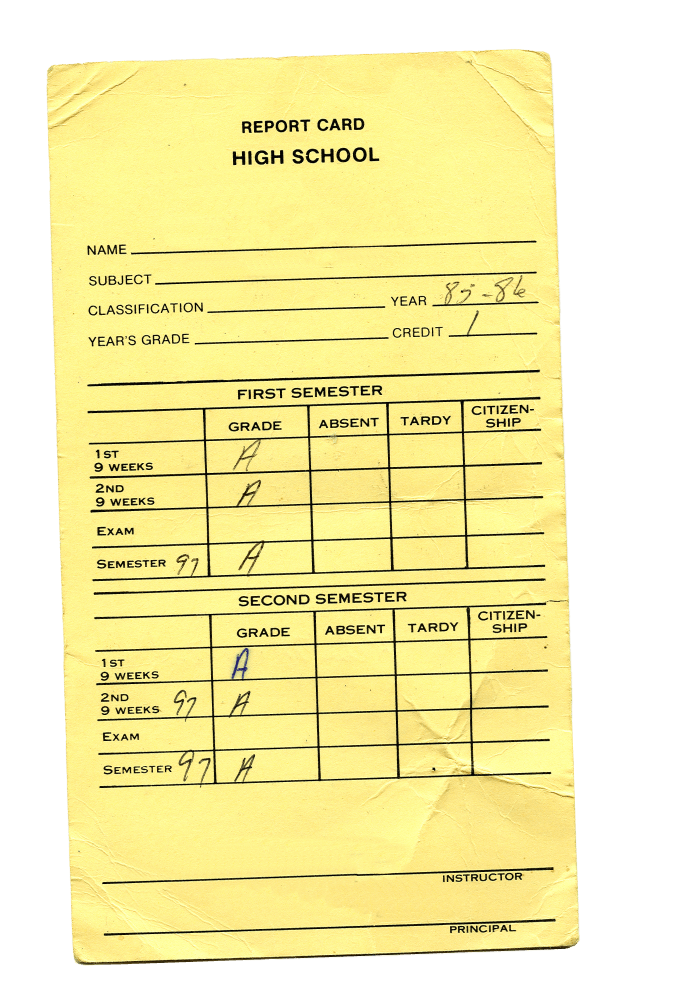 REPORT CARD
HIGH SCHOOL
NAME
SUBJECT
CLASSIFICATION YEAR 85-86
YEAR'S GRADE CREDIT 1
FIRST SEMESTER
GRADE ABSENT TARDY CITIZEN-
SHIP
1ST
9 WEEKS A
2ND
9 WEEKS A
EXAM
SEMESTER 97 A
SECOND SEMESTER
GRADE ABSENT TARDY CITIZEN-
SHIP
1ST
9 WEEKS A
2ND
9 WEEKS 97 A
EXAM
SEMESTER 97 A
INSTRUCTOR
PRINCIPAL